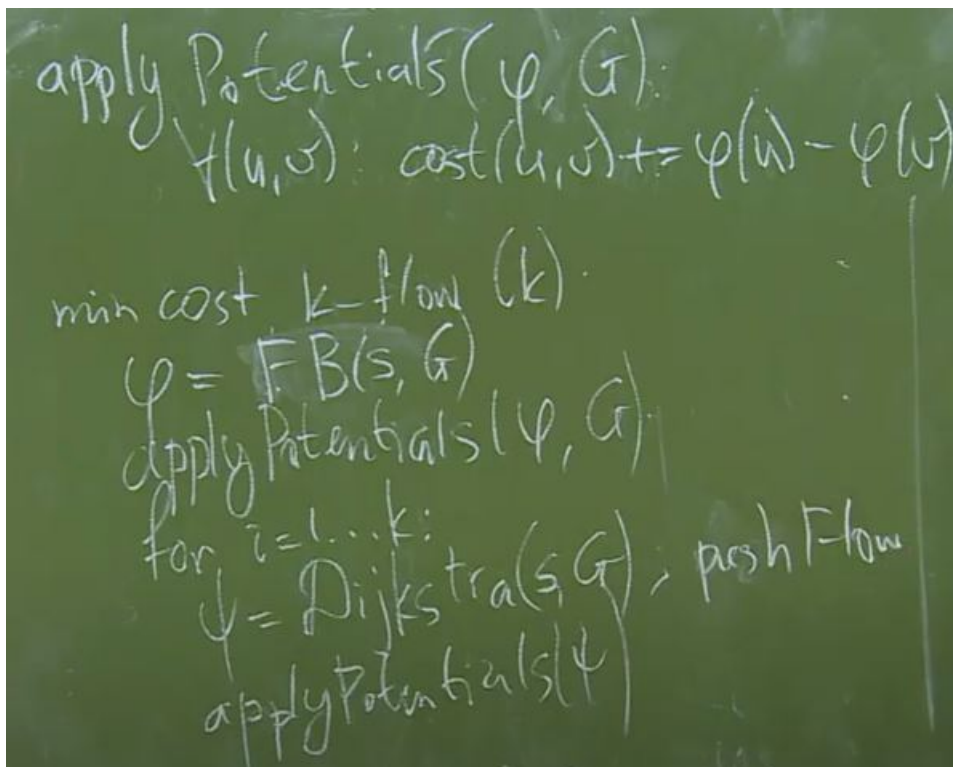 apply Potentials(φ, G):
∀(u,v): cost(u,v)+=φ(u)-φ(v)
min cost k-flow (k).
φ = FB(s, G)
applyPotentials(φ, G).
for i=1...k:
ψ = Dijkstra(s,G), pushFlow
applyPotentials(ψ)